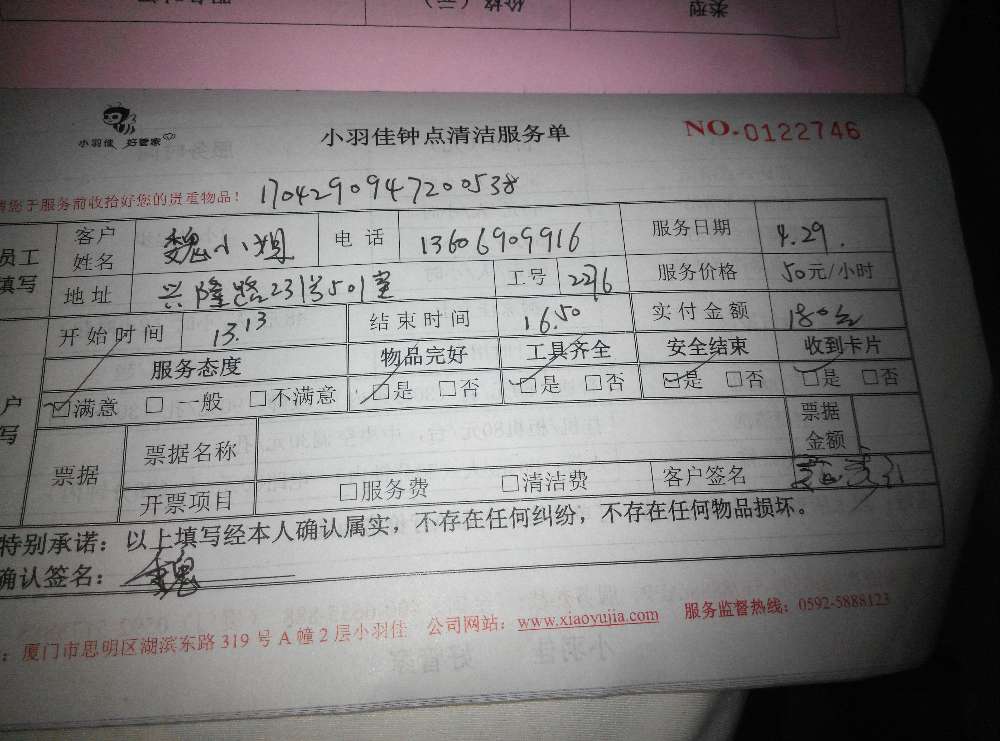 类型 价格（元）
小羽佳 好管家
小羽佳钟点清洁服务单 NO.0122746
请您于服务前收拾好您的贵重物品！ 1704290947200538
员工填写 客户姓名 魏小姐 电话 13606909916 服务日期 4.29.
地址 兴隆路231号501室 工号 2276 服务价格 50元/小时
开始时间 13.13 结束时间 16.50 实付金额 180元
服务态度 物品完好 工具齐全 安全结束 收到卡片
☑满意 □一般 □不满意 ☑是 □否 ☑是 □否 ☑是 □否 ☑是 □否
户写
票据 票据名称 票据金额
开票项目 □服务费 □清洁费 客户签名
特别承诺：以上填写经本人确认属实，不存在任何纠纷，不存在任何物品损坏。
确认签名： 魏
：厦门市思明区湖滨东路 319 号 A 幢 2 层小羽佳 公司网站：www.xiaoyujia.com 服务监督热线：0592-5888123